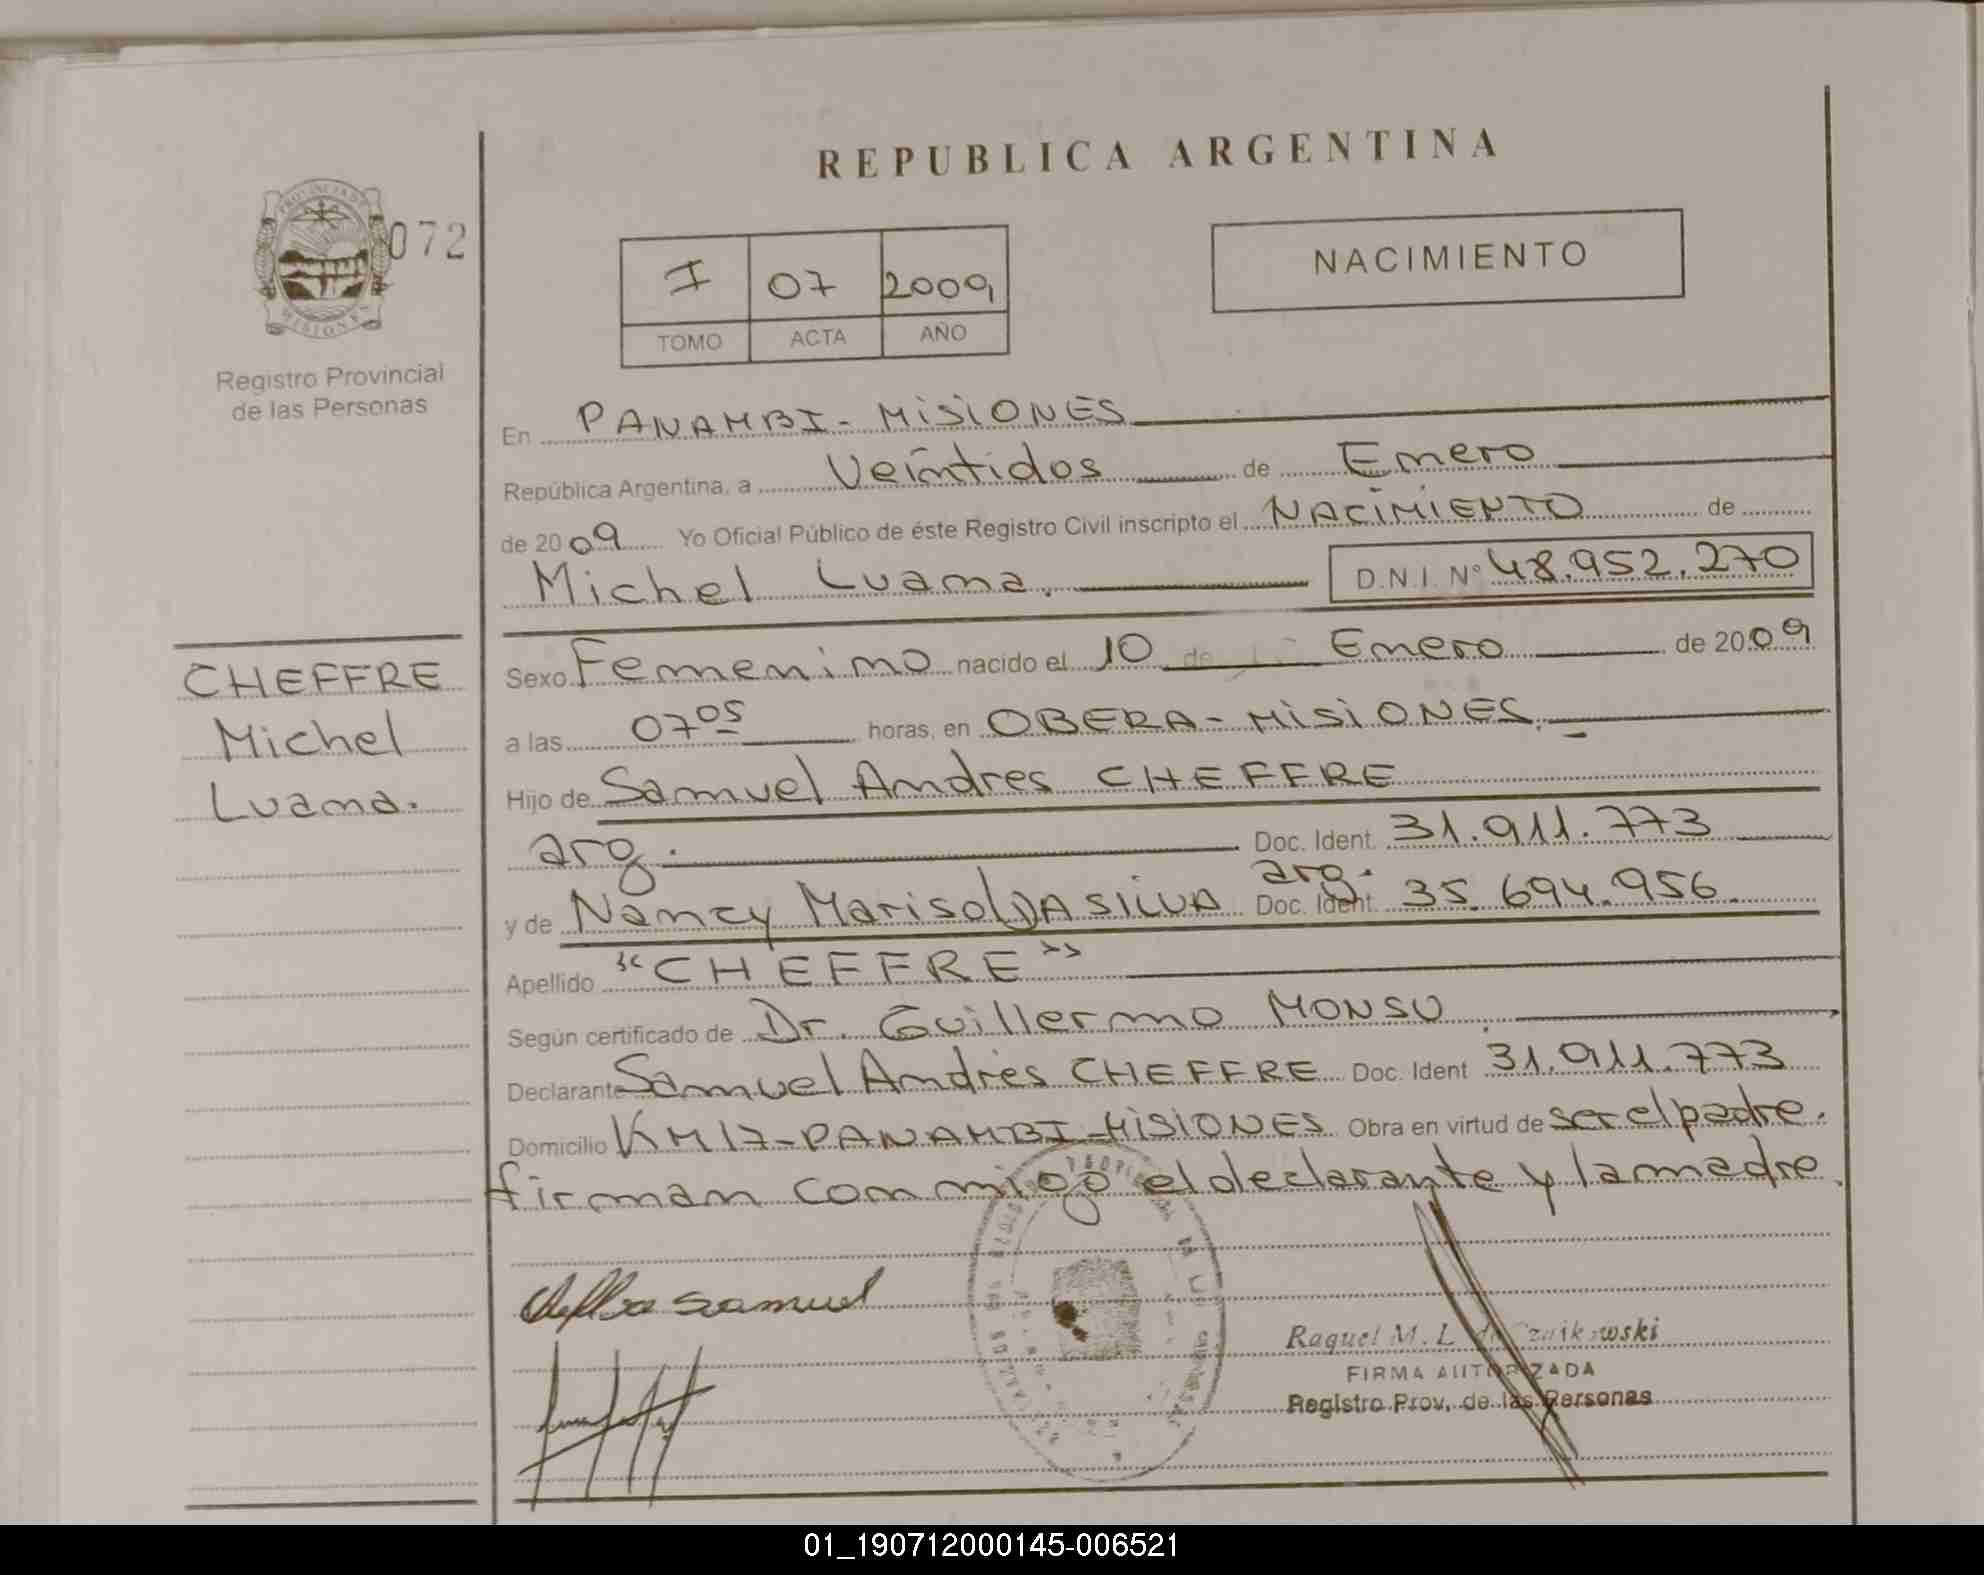 REPUBLICA ARGENTINA
PROVINCIA DE
MISIONES
072
Registro Provincial
de las Personas
I 07 2009
TOMO ACTA AÑO
NACIMIENTO
En PANAMBI - MISIONES
República Argentina, a Veintidos de Enero
de 2009 Yo Oficial Público de éste Registro Civil inscripto el NACIMIENTO de
Michel Luana. D.N.I. Nº 48.952.270
CHEFFRE
Michel
Luana.
Sexo Femenino nacido el 10 de Enero de 2009
a las 07 05 horas, en OBERA - MISIONES.
Hijo de Samuel Andres CHEFFRE
arg. Doc. Ident. 31.911.773
arg.
y de Nancy Marisol DA SILVA Doc. Ident. 35.694.956.
Apellido "CHEFFRE"
Según certificado de Dr. Guillermo MONSU
Declarante Samuel Andrés CHEFFRE Doc. Ident 31.911.773
Domicilio KM 17 - PANAMBI - MISIONES Obra en virtud de ser el padre.
firman conmigo el declarante y la madre.
samuel
Raquel M. L. de
FIRMA AUTORIZADA
Registro Prov. de las Personas
01_190712000145-006521